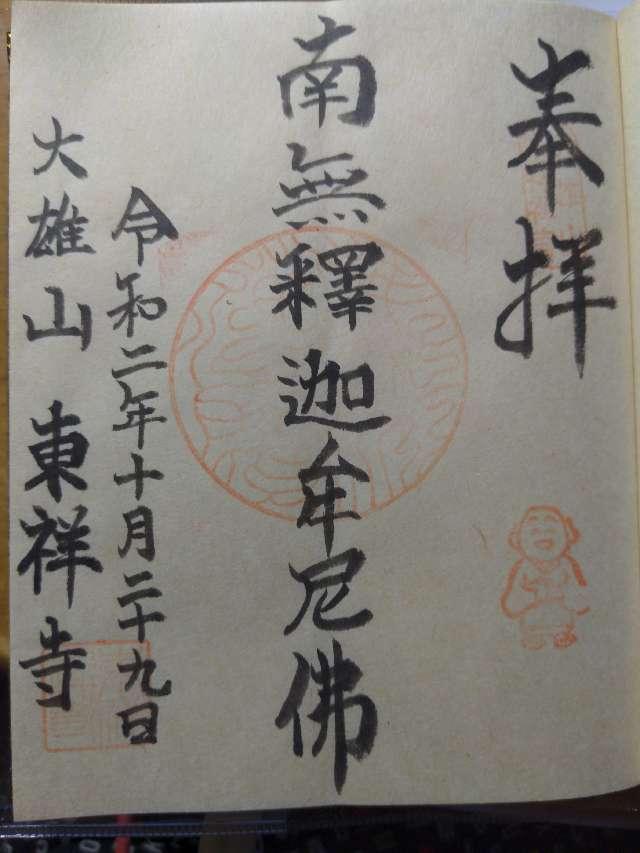 奉拝
南無釋迦牟尼佛
令和二年十月二十九日
大雄山 東祥寺